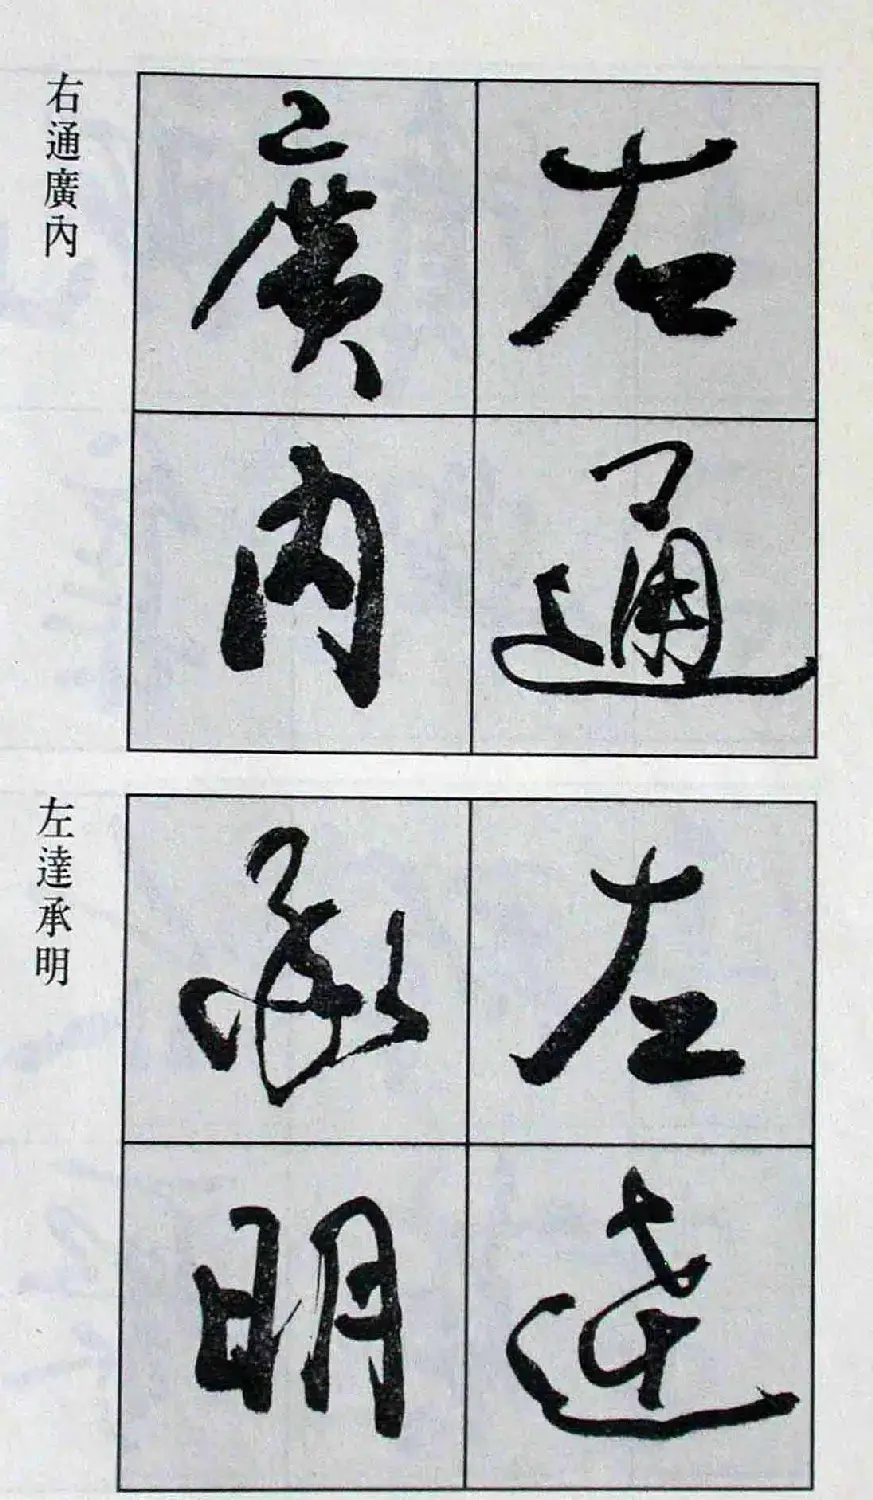 右通
廣內
右通廣內
左達
承明
左達承明